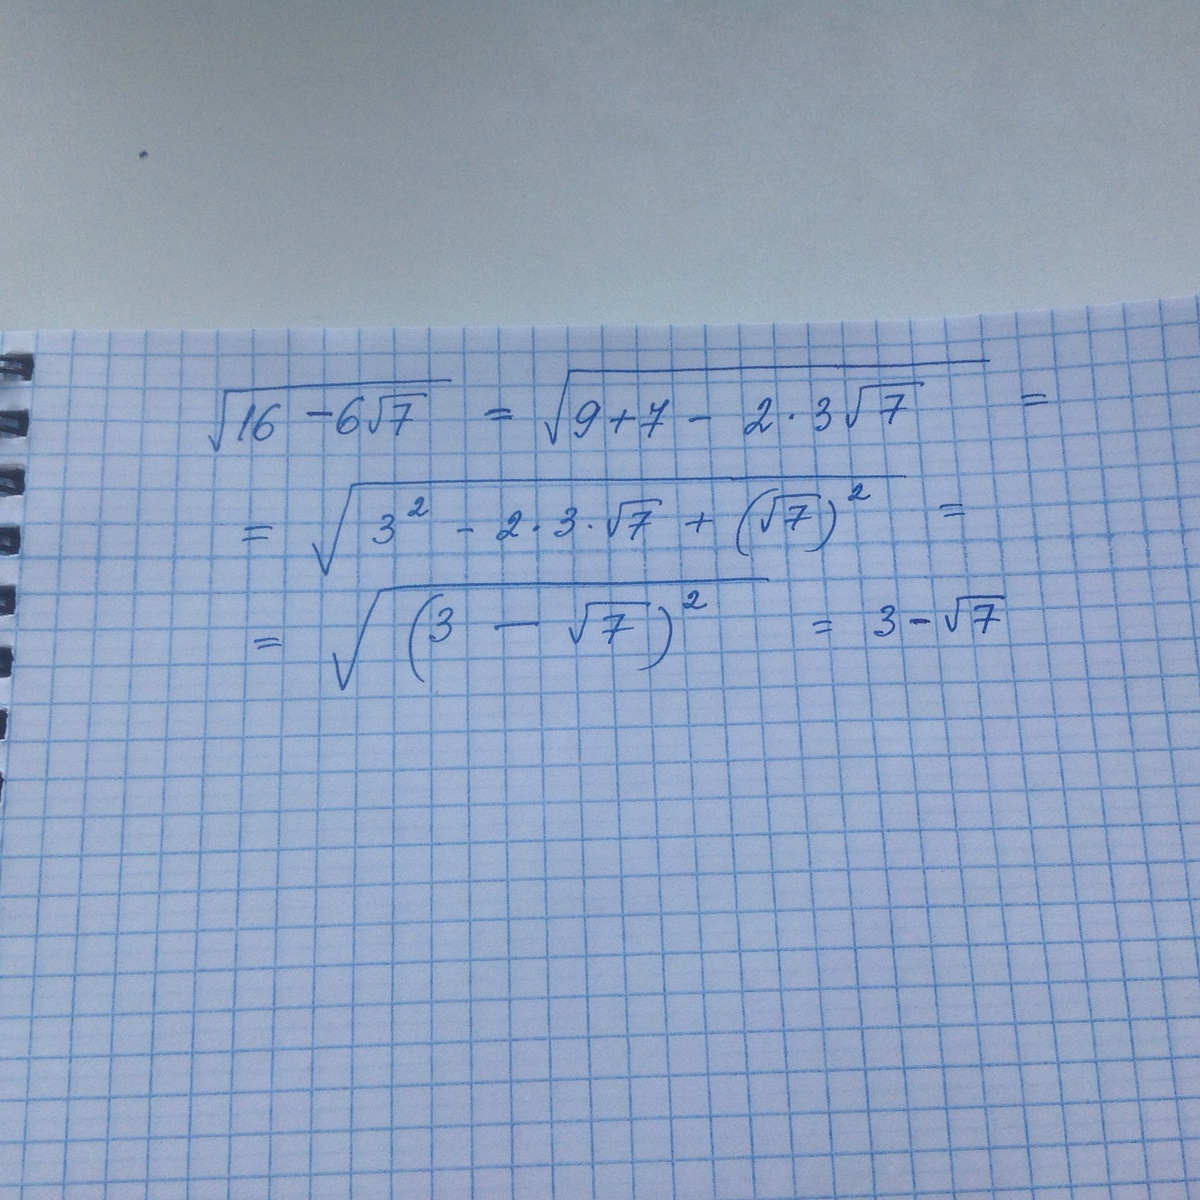 √(16 - 6√7) = √(9 + 7 - 2 · 3√7) =
= √(3² - 2 · 3 · √7 + (√7)²) =
= √((3 - √7)²) = 3 - √7